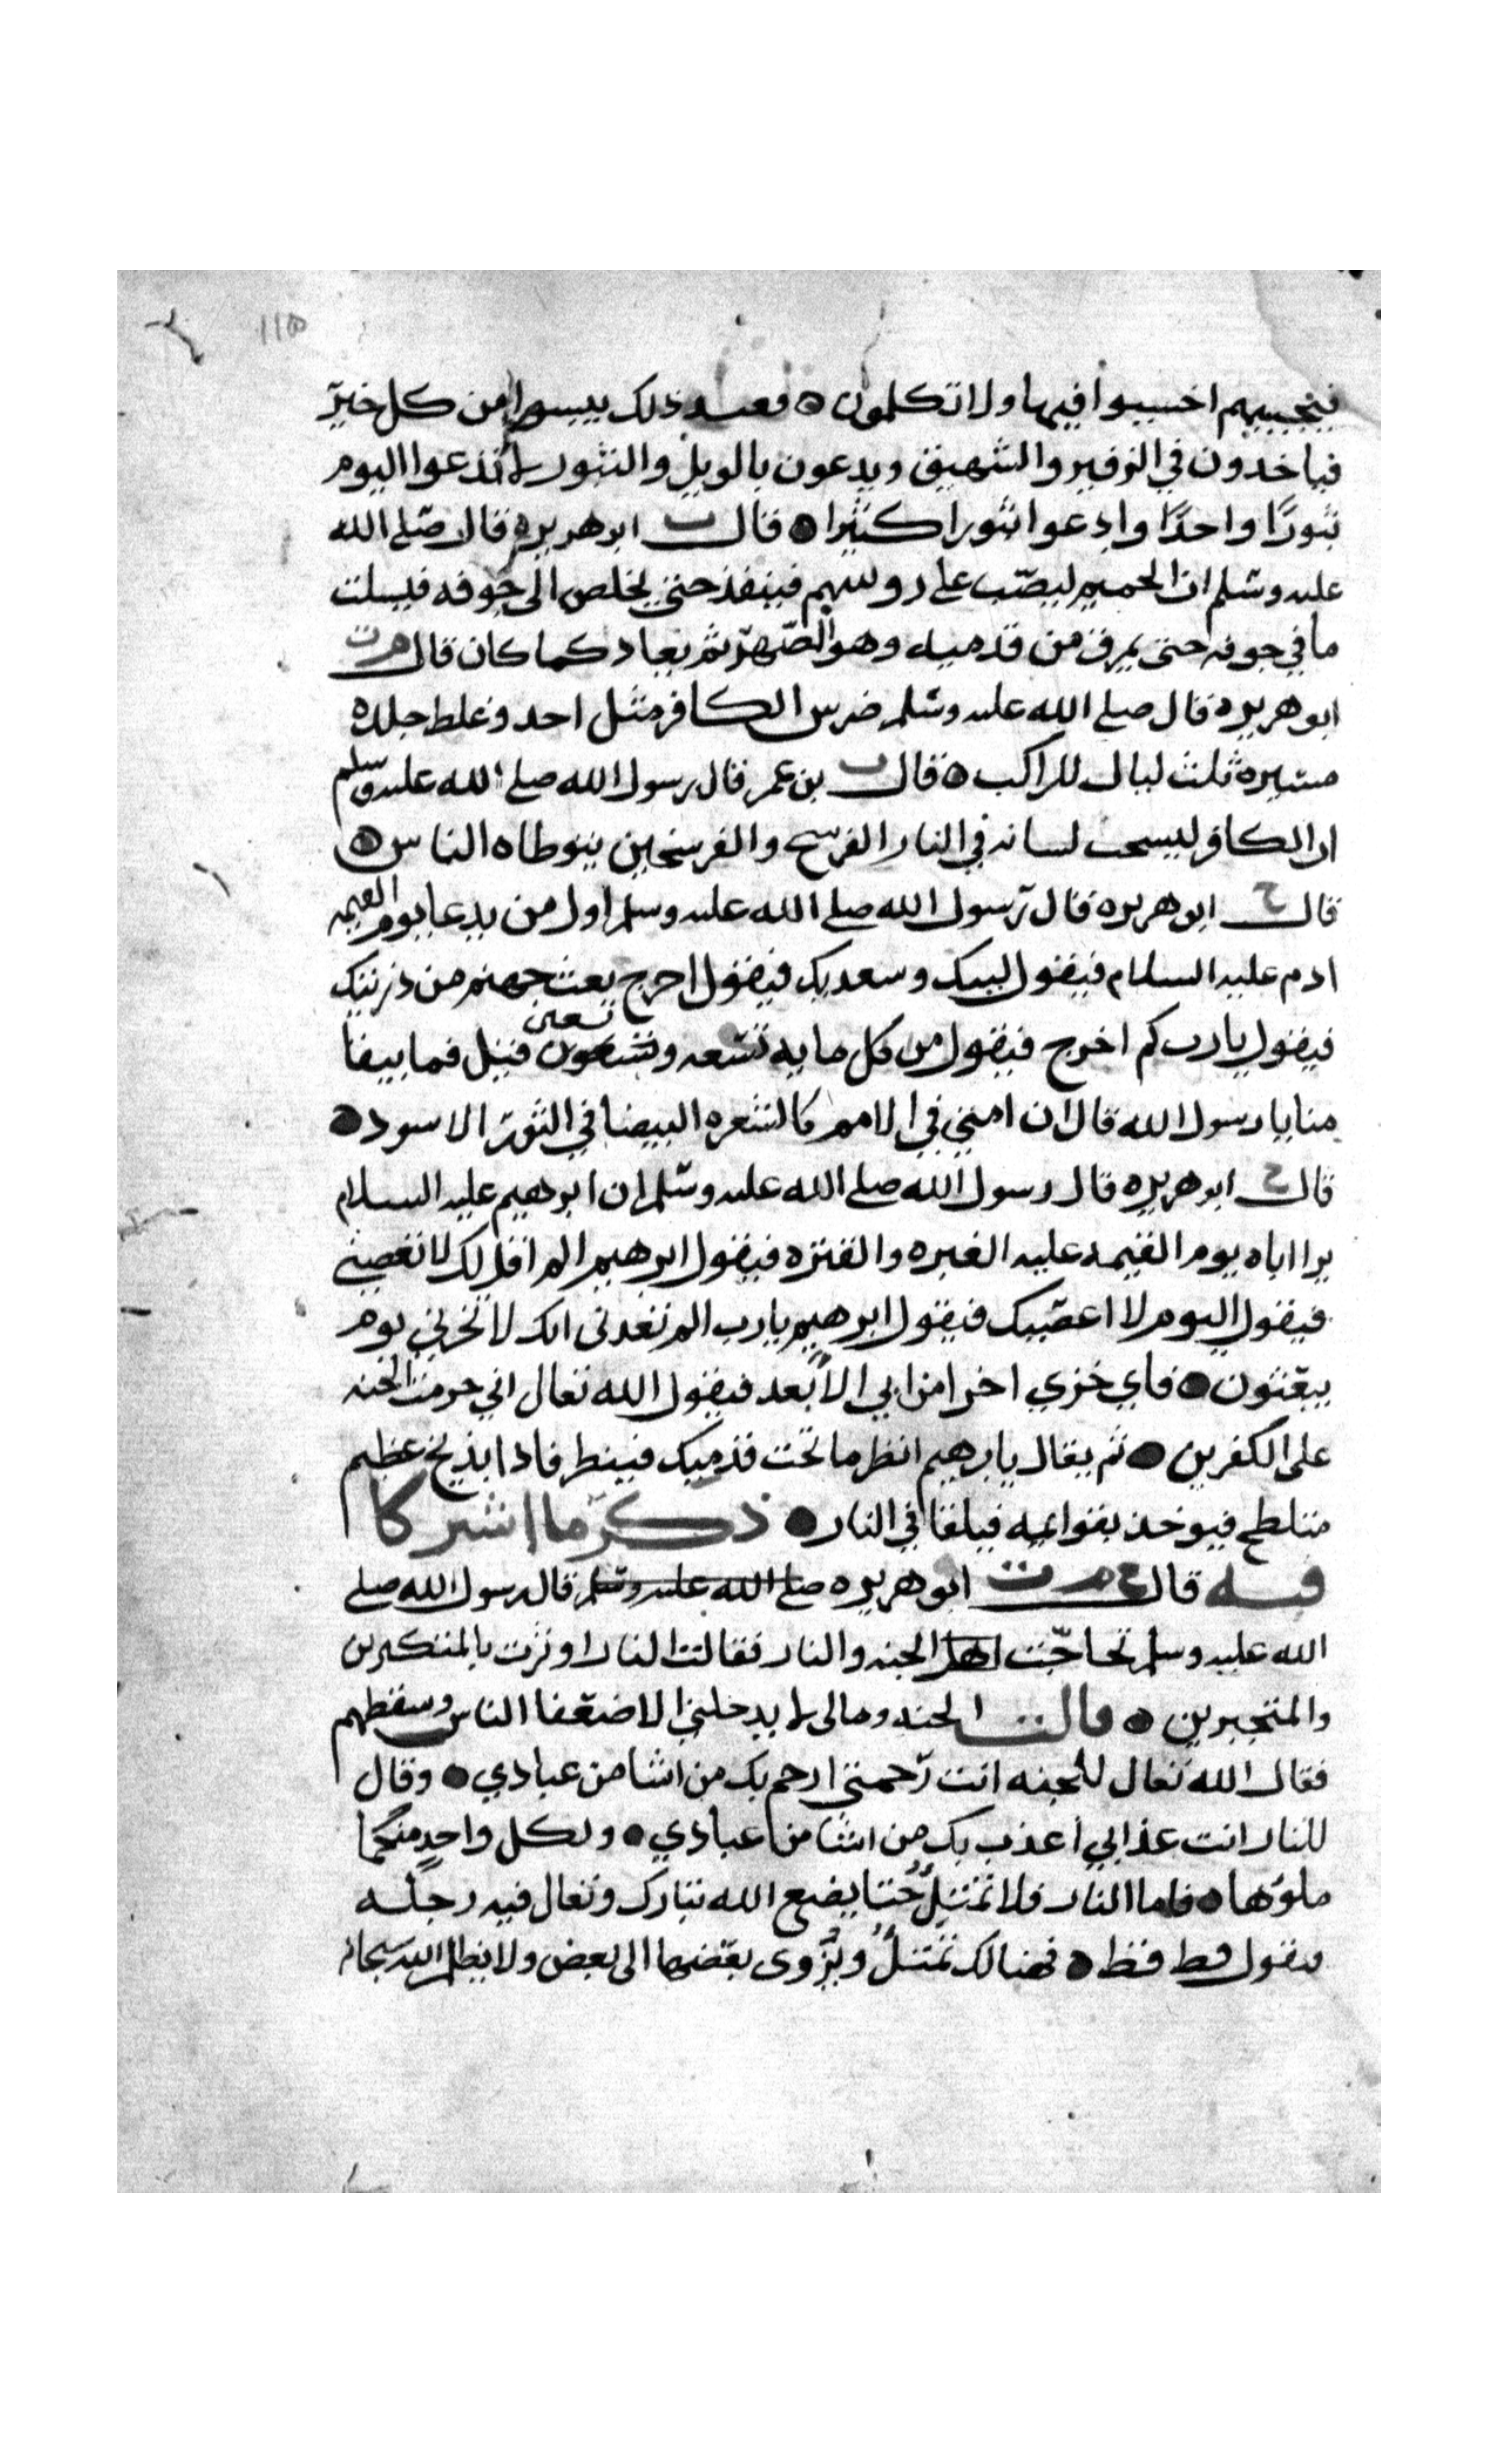 فيجيبهم اخسيوا فيها ولا تكلمون ه فعند ذلك ييسوا من كل خير
فياخدون في الزفير والشهيق ويدعون بالويل والثبور لا تدعوا اليوم
ثبورًا واحدًا وادعوا ثبورا كثيرا ه قال ت ابو هريره قال صلى الله
عليه وسلم ان الحميم ليصب على روسهم فينفذ حتى يخلص الى جوفه فيسلت
ما في جوفه حتى يمرق من قدميه وهو الصهر ثم يعاد كما كان قال م ت
ابو هريره قال صلى الله عليه وسلم ضرس الكافر مثل احد وغلظ جلده
مسيره ثلث ليال للراكب ه قال ت بن عمر قال رسول الله صلى الله عليه وسلم
ان الكافر ليسحب لسانه في النار الفرسخ والفرسخين يتوطاه الناس ه
قال خ ابو هريره قال رسول الله صلى الله عليه وسلم اول من يدعا يوم القيمه
ادم عليه السلام فيقول لبيك وسعديك فيقول اخرج بعث جهنم من ذريتك
فيقول يا رب كم اخرج فيقول من كل مايه تسعه وتسعون تسعين قيل فما يبقا
منا يا رسول الله قال ان امتي في الامم كالشعره البيضا في الثور الاسود ه
قال خ ابو هريره قال رسول الله صلى الله عليه وسلم ان ابرهيم عليه السلام
يرا اباه يوم القيمه عليه الغبره والقتره فيقول ابرهيم الم اقل لك لا تعصيني
فيقول اليوم لا اعصيك فيقول ابرهيم يا رب الم تعدنى انك لا تخزني يوم
يبعثون ه فاي خزي اخزا من ابي الابعد فيقول الله تعالى اني حرمت الجنه
على الكفرين ه ثم يقال يابرهيم انظر ما تحت قدميك فينظر فاذا بذيخ عظيم
متلطخ فيوخذ بقوايمه فيلقا في النار ه ذكر ما اشتركا
فيه قال خ م ت ابو هريره صلى الله عليه وسلم قال رسول الله صلى
الله عليه وسلم تحاجت اهل الجنه والنار فقالت النار اوثرت بالمتكبرين
والمتجبرين ه قالت الجنه ومالى لا يدخلني الا ضعفا الناس وسقطهم
فقال الله تعالى للجنه انت رحمتي ارحم بك من اشا من عبادي ه وقال
للنار انت عذابي أعذب بك من اشا من عبادي ه ولكل واحدٍ منكما
ملوها ه فاما النار فلا تمتلئُ حتا يضع الله تبارك وتعالى فيه رجله
فتقول قط قط ه فهنالك تمتلئُ ويُزْوى بعضها الى بعض ولا يظلم الله سبحانه